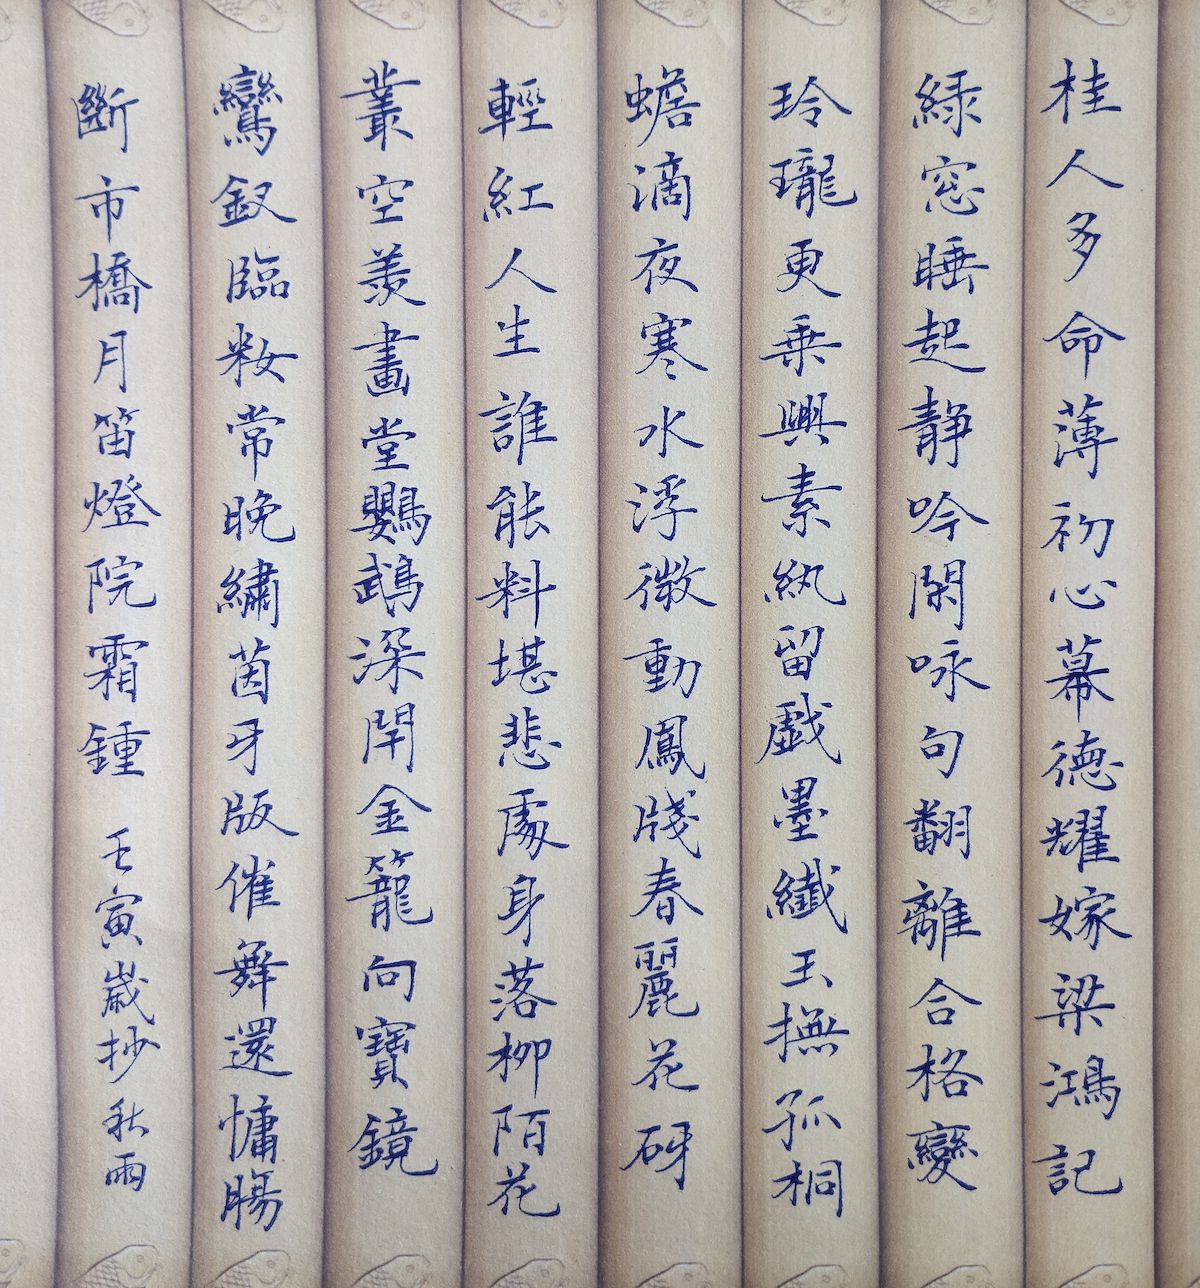 桂人多命薄初心慕德耀嫁梁鴻記
綠窓睡起靜吟閑咏句翻離合格變
玲瓏更乗興素紈留戲墨纖玉撫孤桐
蟾滴夜寒水浮微動鳳牋春麗花砑
輕紅人生誰能料堪悲處身落柳陌花
叢空羨畫堂鸚鵡深閈金籠向寶鏡
鸞釵臨籹常晚繡茵牙版催舞還慵腸
斷市橋月笛燈院霜鍾 壬寅歲抄秋雨